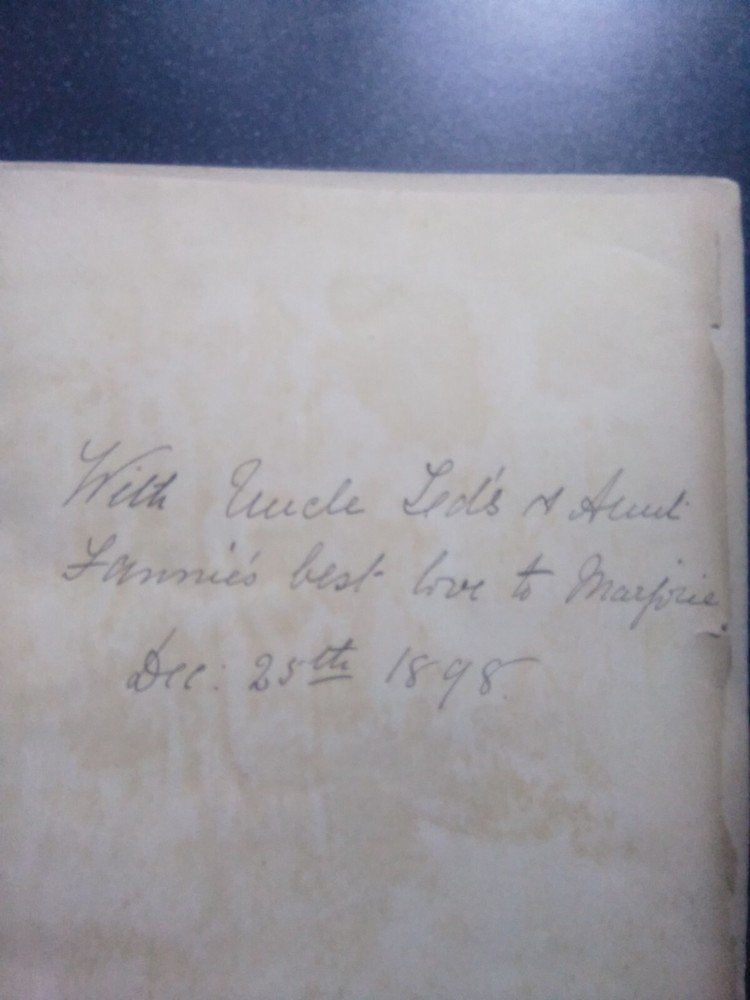 With Uncle Ted's & Aunt
Fannie's best love to Marjorie.
Dec: 25th 1898.